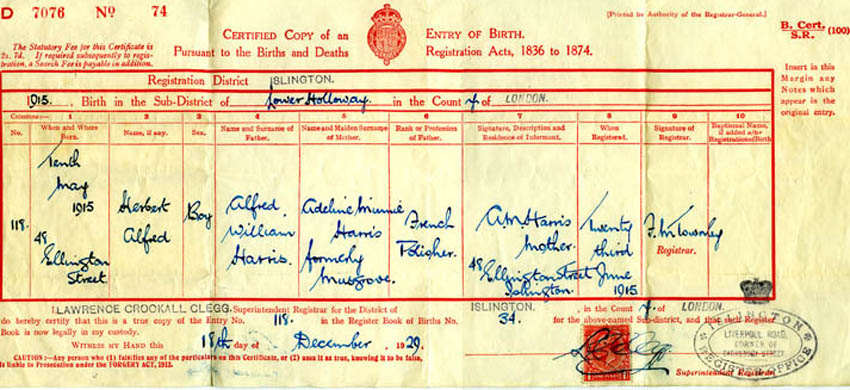 D 7076 Nº 74
[Printed by Authority of the Registrar-General.]
B. Cert.
S.R. (100)
The Statutory Fee for this Certificate is
2s. 7d. If required subsequently to regis-
tration, a Search Fee is payable in addition.
CERTIFIED COPY of an ENTRY OF BIRTH.
Pursuant to the Births and Deaths Registration Acts, 1836 to 1874.
Insert in this
Margin any
Notes which
appear in the
original entry.
Registration District ISLINGTON.
1915. Birth in the Sub-District of Lower Holloway. in the County of LONDON.
Columns:— 1 2 3 4 5 6 7 8 9 10
No. When and Where Born. Name, if any. Sex. Name and Surname of Father. Name and Maiden Surname of Mother. Rank or Profession of Father. Signature, Description and Residence of Informant. When Registered. Signature of Registrar. Baptismal Name, if added after Registration of Birth
118. Tenth May 1915 48 Ellington Street Herbert Alfred Boy Alfred William Harris. Adeline Minnie Harris formerly Musgrove. French Polisher. A.M. Harris Mother. 48 Ellington Street Islington Twenty third June 1915 F.W. Townley Registrar.
I, LAWRENCE CROOKALL CLEGG. Superintendent Registrar for the District of ISLINGTON. in the County of LONDON.
do hereby certify that this is a true copy of the Entry No. 118. in the Register Book of Births No. 34. for the above-named Sub-district, and that such Register
Book is now legally in my custody.
WITNESS MY HAND this 18th day of December 1929.
CAUTION:—Any person who (1) falsifies any of the particulars on this Certificate, or (2) uses it as true, knowing it to be false,
is liable to Prosecution under the FORGERY ACT, 1913.
Superintendent Registrar.
ISLINGTON
LIVERPOOL ROAD,
CORNER OF
STREET
REGISTER OFFICE